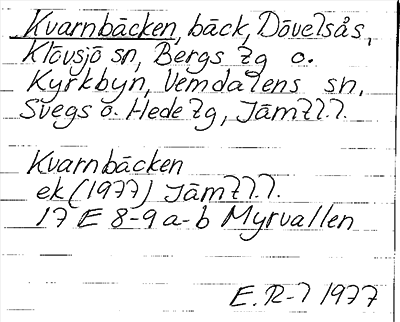 Kvarnbäcken, bäck, Dövelsås,
Klövsjö sn, Bergs tg o.
Kyrkbyn, Vemdalens sn,
Svegs o. Hede tg, Jämtl.l.
Kvarnbäcken
ek (1977) Jämtl.l.
17 E 8-9 a-b Myrvallen
E. R-l 1977